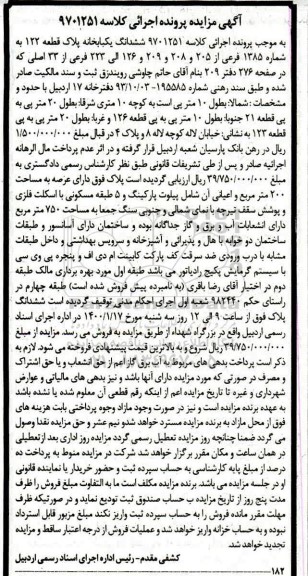 آگهی مزایده پرونده اجرائی کلاسه ۹۷۰۱۲۵۱
به موجب پرونده اجرائی کلاسه ۹۷۰۱۲۵۱ ششدانگ یکبابخانه پلاک قطعه ۱۲۲ به
شماره ۱۳۸۵ فرعی از ۲۰۵ و ۲۰۸ و ۲۰۹ و ۱۲۶ الی ۲۲۳ فرعی از ۳۳ اصلی که
در صفحه ۲۷۶ دفتر ۲۰۹ بنام آقای حاتم چاوشی رویندزق ثبت و سند مالکیت صادر
شده و طبق سند رهنی شماره ۱۹۵۵۸۵-۹۳/۱۰/۰۳ دفترخانه ۱۷ اردبیل با حدود و
مشخصات : شمالا: بطول ۱۰ متر پی است به کوچه ۱۰ متری شرقا: بطول ۲۰ متر پی به
پی قطعه ۲۱ جنوبا: بطول ۱۰ متر پی به پی قطعه ۱۲۶ و غربا: بطول ۲۰ متر پی به پی
قطعه ۱۲۳ به نشانی: خیابان لاله کوچه لاله ۸ و پلاک ۴ در قبال مبلغ ۱/۵۰۰/۰۰۰/۰۰۰
ریال در رهن بانک پارسیان شعبه اردبیل قرار گرفته و در اثر عدم پرداخت مال الرهانه
اجرائیه صادر و پس از طی تشریفات قانونی طبق نظر کارشناس رسمی دادگستری به
مبلغ ۳۹/۷۵۰/۰۰۰/۰۰۰ ریال ارزیابی گردیده است پلاک فوق دارای عرصه به مساحت
۲۰۰ متر مربع و اعیانی آن شامل پیلوت پارکینگ و ۵ طبقه مسکونی با اسکلت فلزی
و پوشش سقف تیرچه با نمای شمالی و جنوبی سنگ جمعا به مساحت ۷۵۰ متر مربع
دارای انشعابات آب و برق و گاز جداگانه بوده و ساختمان دارای آسانسور و طبقات
ساختمان دو خوابه با هال و پذیرائی و آشپزخانه و سرویس بهداشتی و داخل طبقات
مشابه با درب ورودی ضد سرقت کف پارکت کابینت ام دی اف و پنجره پی وی سی
با سیستم گرمایش پکیج رادیاتور می باشد طبقه اول مورد بهره برداری مالک طبقه
دوم در اختیار آقای رضا باقری (به نامبرده پیش فروش شده است) طبقه چهارم در
راستای حکم ۹۸۲۴۴۰ شعبه اول اجرای احکام مدنی توقیف گردیده است ششدانگ
پلاک فوق از ساعت ۹ الی ۱۲ روز سه شنبه مورخ ۱۴۰۰/۱/۱۷ در اداره اجرای اسناد
رسمی اردبیل واقع در بزرگراه شهداء از طریق مزایده به فروش می رسد. مزایده از مبلغ
۳۹/۷۵۰/۰۰۰/۰۰۰ ریال شروع و به بالاترین قیمت پیشنهادی فروخته می شود. لازم به
ذکر است پرداخت بدهی های مربوط به آب برق گاز اعم از حق انشعاب و یا حق اشتراک
و مصرف در صورتی که مورد مزایده دارای آنها باشد و نیز بدهی های مالیاتی و عوارض
شهرداری و غیره تا تاریخ مزایده اعم از اینکه رقم قطعی آن معلوم شده یا نشده باشد
به عهده برنده مزایده است و نیز در صورت وجود مازاد وجوه پرداختی بابت هزینه های
فوق از محل مازاد به برنده مزایده مسترد خواهد شد و نیم عشر و حق مزایده نقدا وصول
می گردد ضمنا چنانچه روز مزایده تعطیل رسمی گردد مزایده روز اداری بعد از تعطیلی
در همان ساعت و مکان مقرر برگزار خواهد شد شرکت در مزایده منوط به پرداخت ده
درصد از مبلغ پایه کارشناسی به حساب سپرده ثبت و حضور خریدار یا نماینده قانونی
او در جلسه مزایده می باشد. برنده مزایده مکلف است ما به التفاوت مبلغ فروش را ظرف
مدت پنج روز از تاریخ مزایده به حساب صندوق ثبت تودیع نماید و در صورتیکه ظرف
مهلت مقرر مانده فروش را به حساب سپرده ثبت واریز نکند مبلغ مزبور قابل استرداد
نبوده و به حساب خزانه واریز خواهد شد و عملیات فروش از درجه اعتبار ساقط و مزایده
تجدید خواهد شد.
کشفی مقدم- رئیس اداره اجرای اسناد رسمی اردبیل
۱۸۲